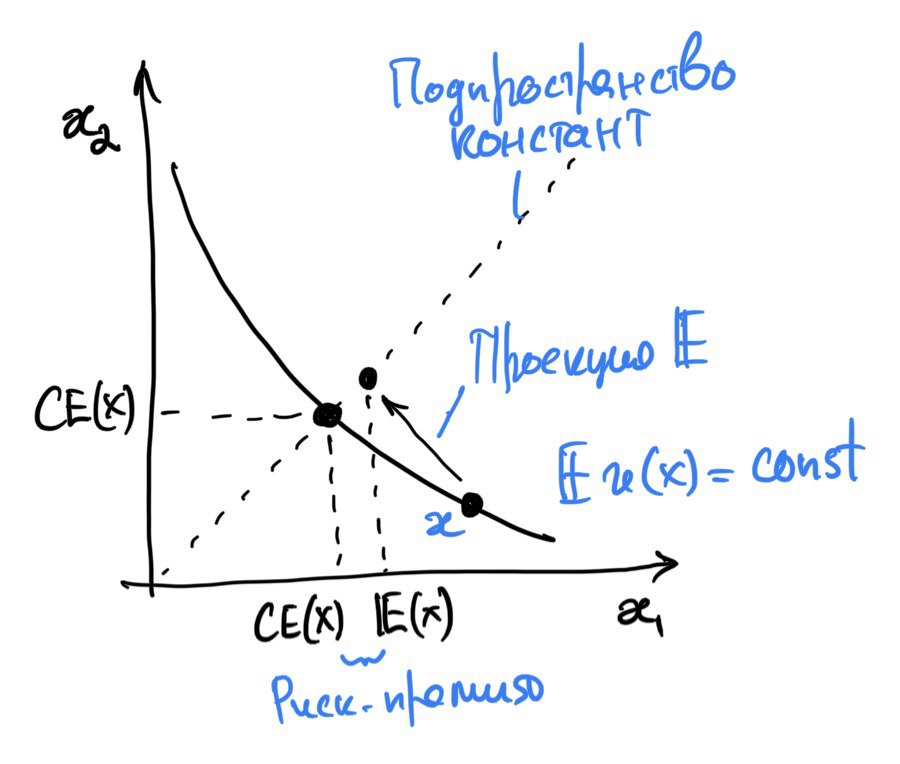 Подпространство
констант
x₂
Проекция 𝔼
CE(x)
𝔼 u(x) = const
x
CE(x) 𝔼(x)
x₁
Риск-премия